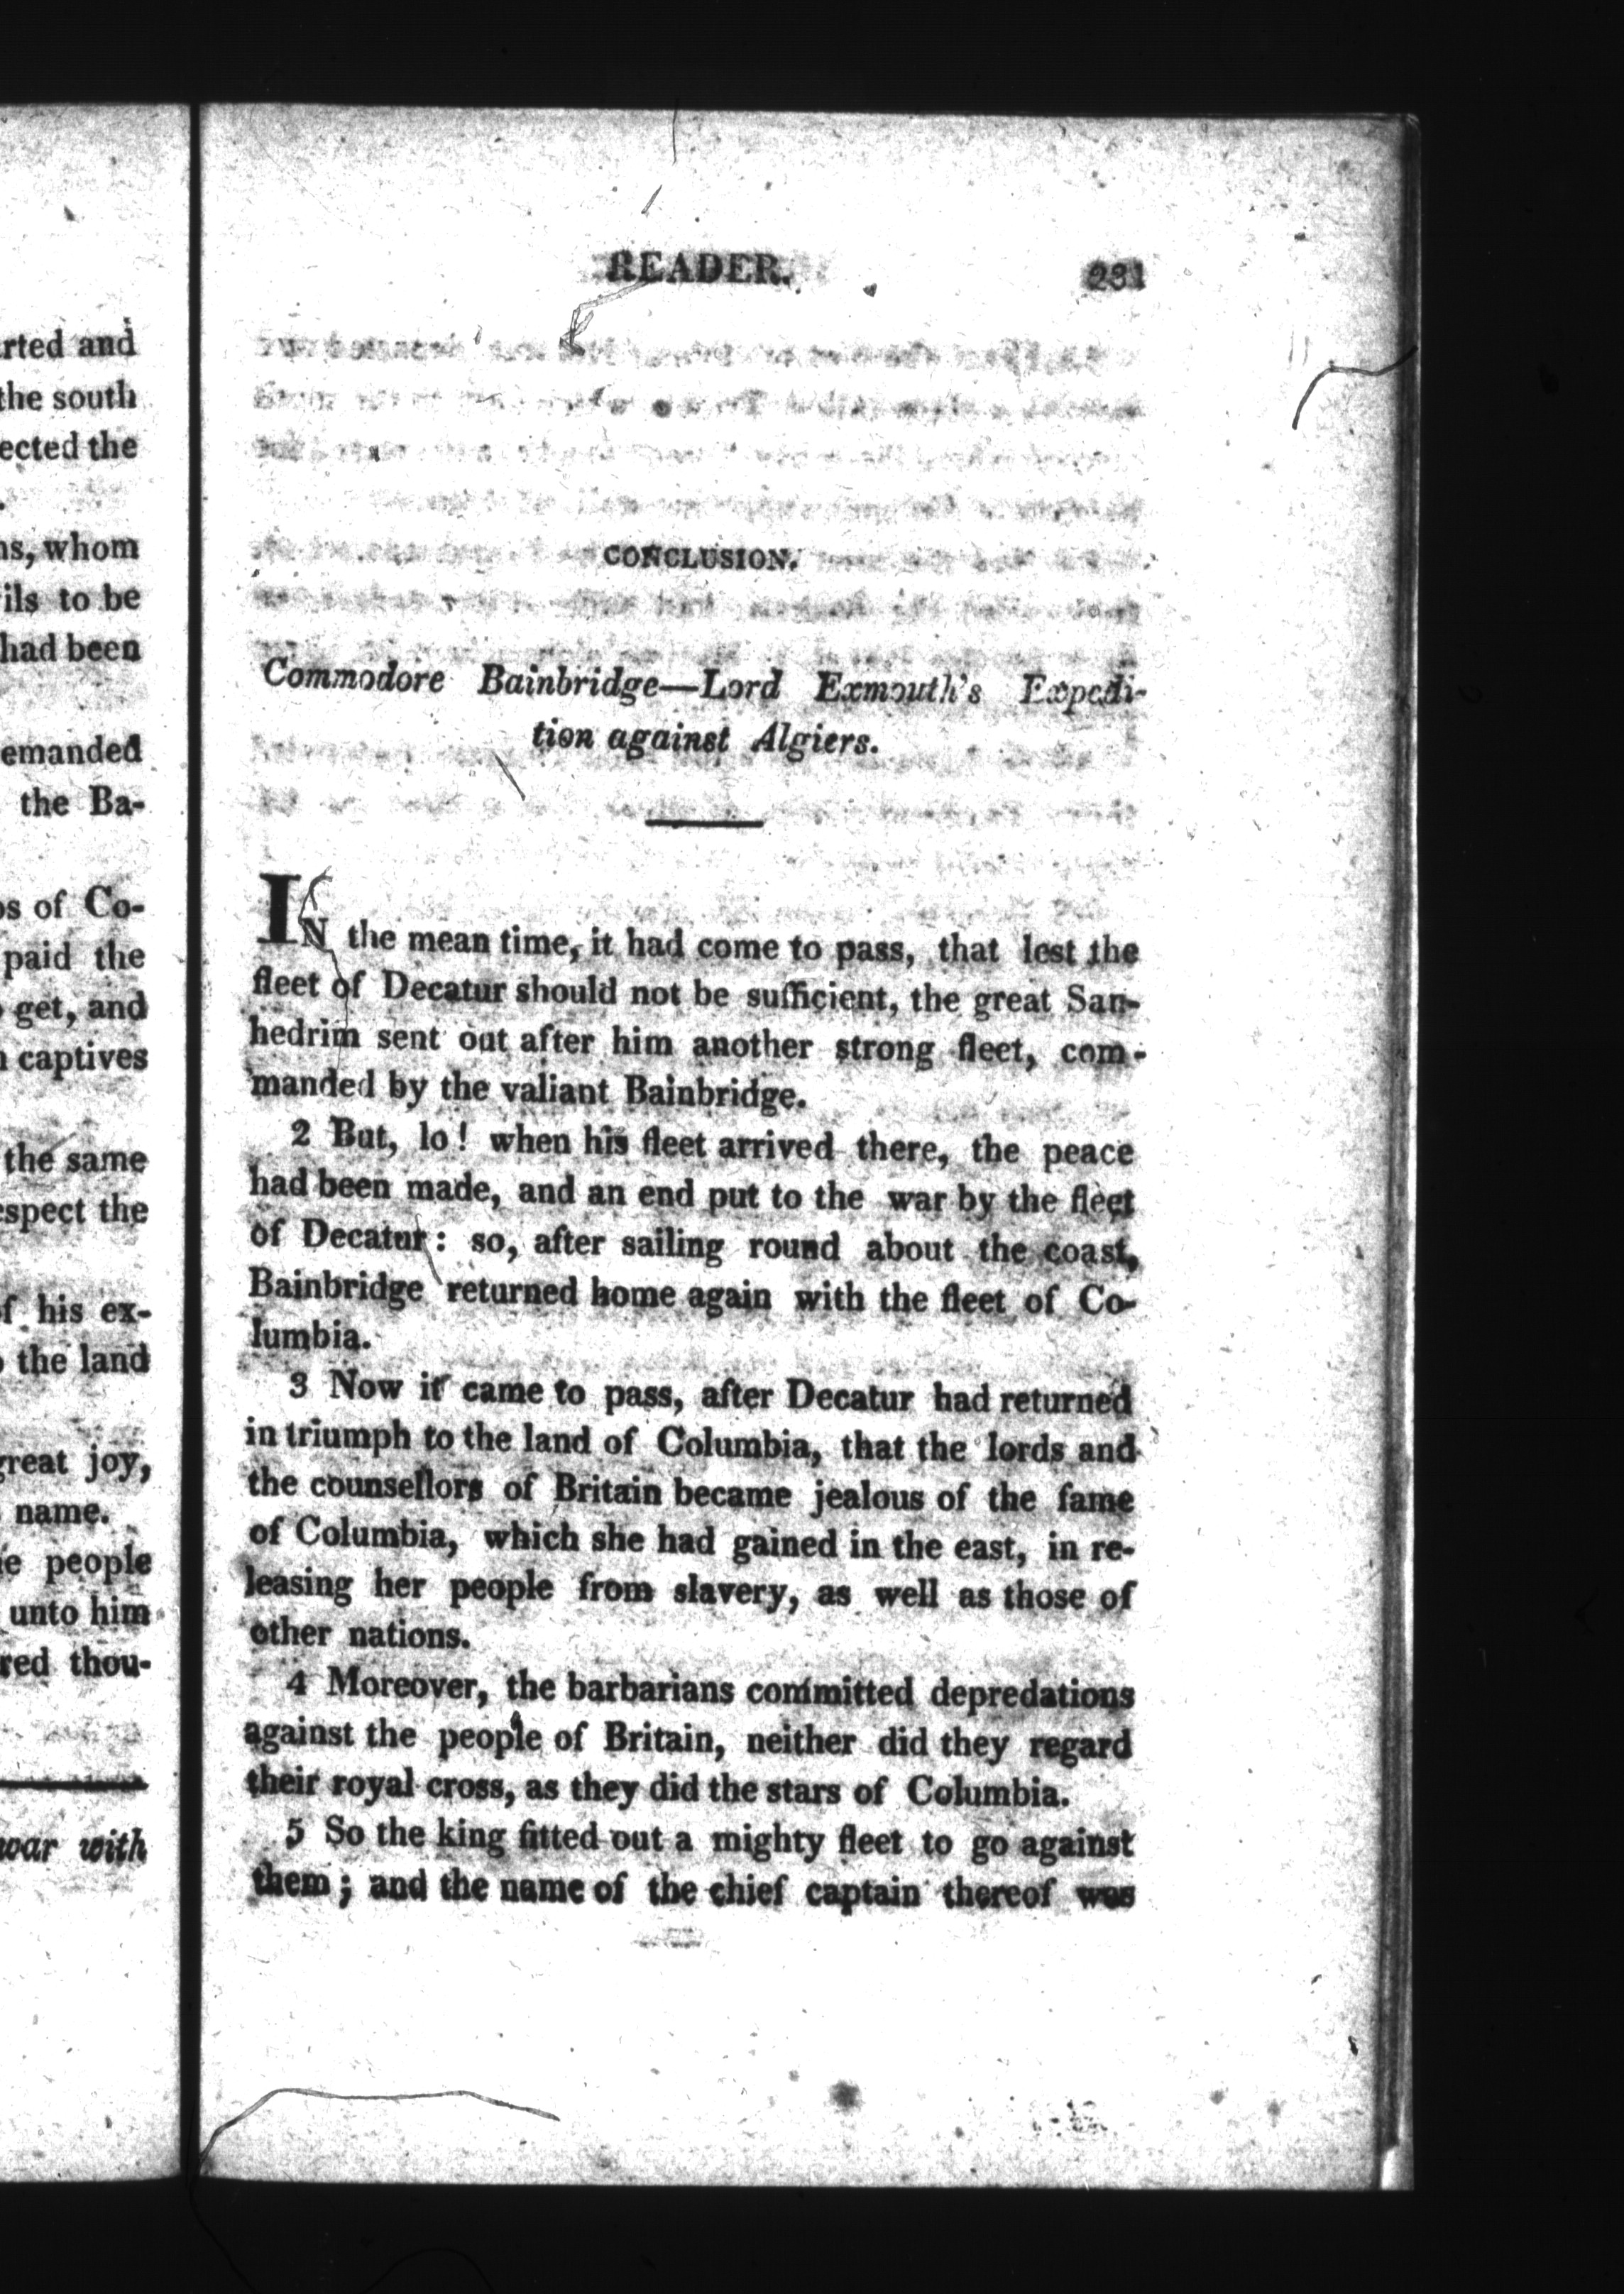 rted and
the south
ected the
ns, whom
ils to be
had been
emanded
the Ba-
os of Co-
paid the
get, and
captives
the same
espect the
of his ex-
the land
great joy,
name.
people
unto him
red thou-
war with
READER.
231
CONCLUSION.
Commodore Bainbridge—Lord Exmouth's Expedi-
tion against Algiers.
IN the mean time, it had come to pass, that lest the
fleet of Decatur should not be sufficient, the great San-
hedrim sent out after him another strong fleet, com-
manded by the valiant Bainbridge.
2 But, lo! when his fleet arrived there, the peace
had been made, and an end put to the war by the fleet
of Decatur: so, after sailing round about the coast,
Bainbridge returned home again with the fleet of Co-
lumbia.
3 Now it came to pass, after Decatur had returned
in triumph to the land of Columbia, that the lords and
the counsellors of Britain became jealous of the fame
of Columbia, which she had gained in the east, in re-
leasing her people from slavery, as well as those of
other nations.
4 Moreover, the barbarians committed depredations
against the people of Britain, neither did they regard
their royal cross, as they did the stars of Columbia.
5 So the king fitted out a mighty fleet to go against
them; and the name of the chief captain thereof was